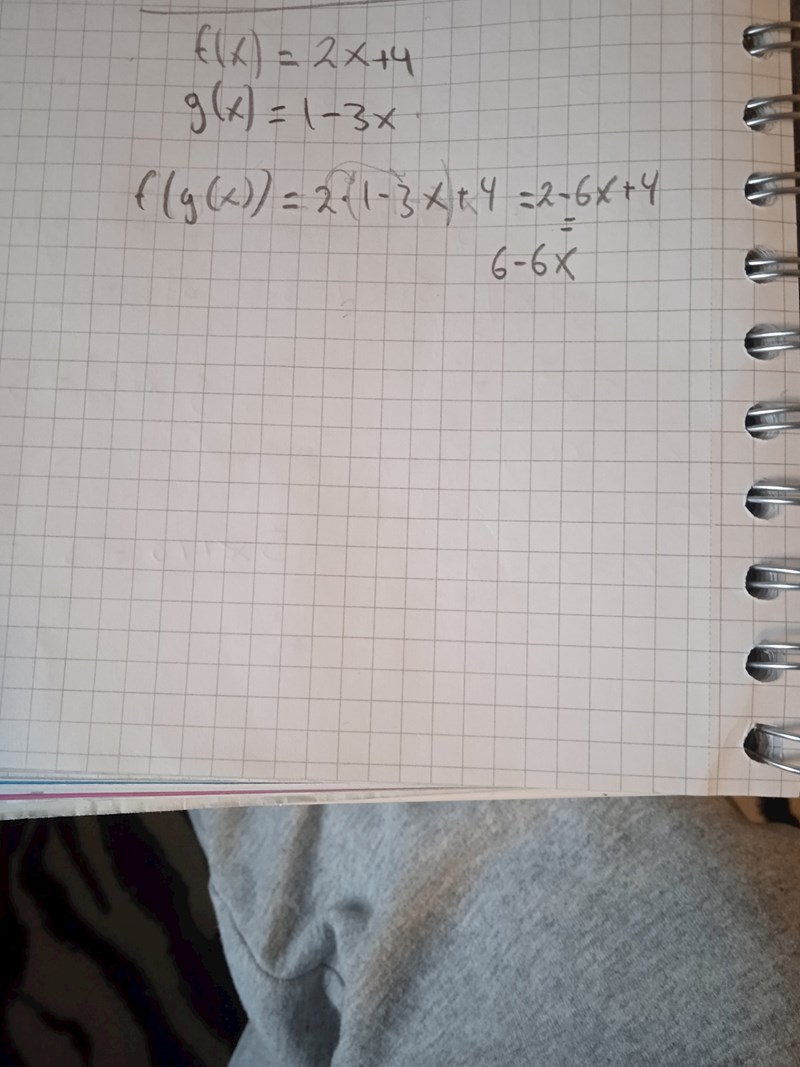 f(x) = 2x+4
g(x) = 1-3x
f(g(x)) = 2·(1-3x)+4 =2-6x+4
=
6-6x